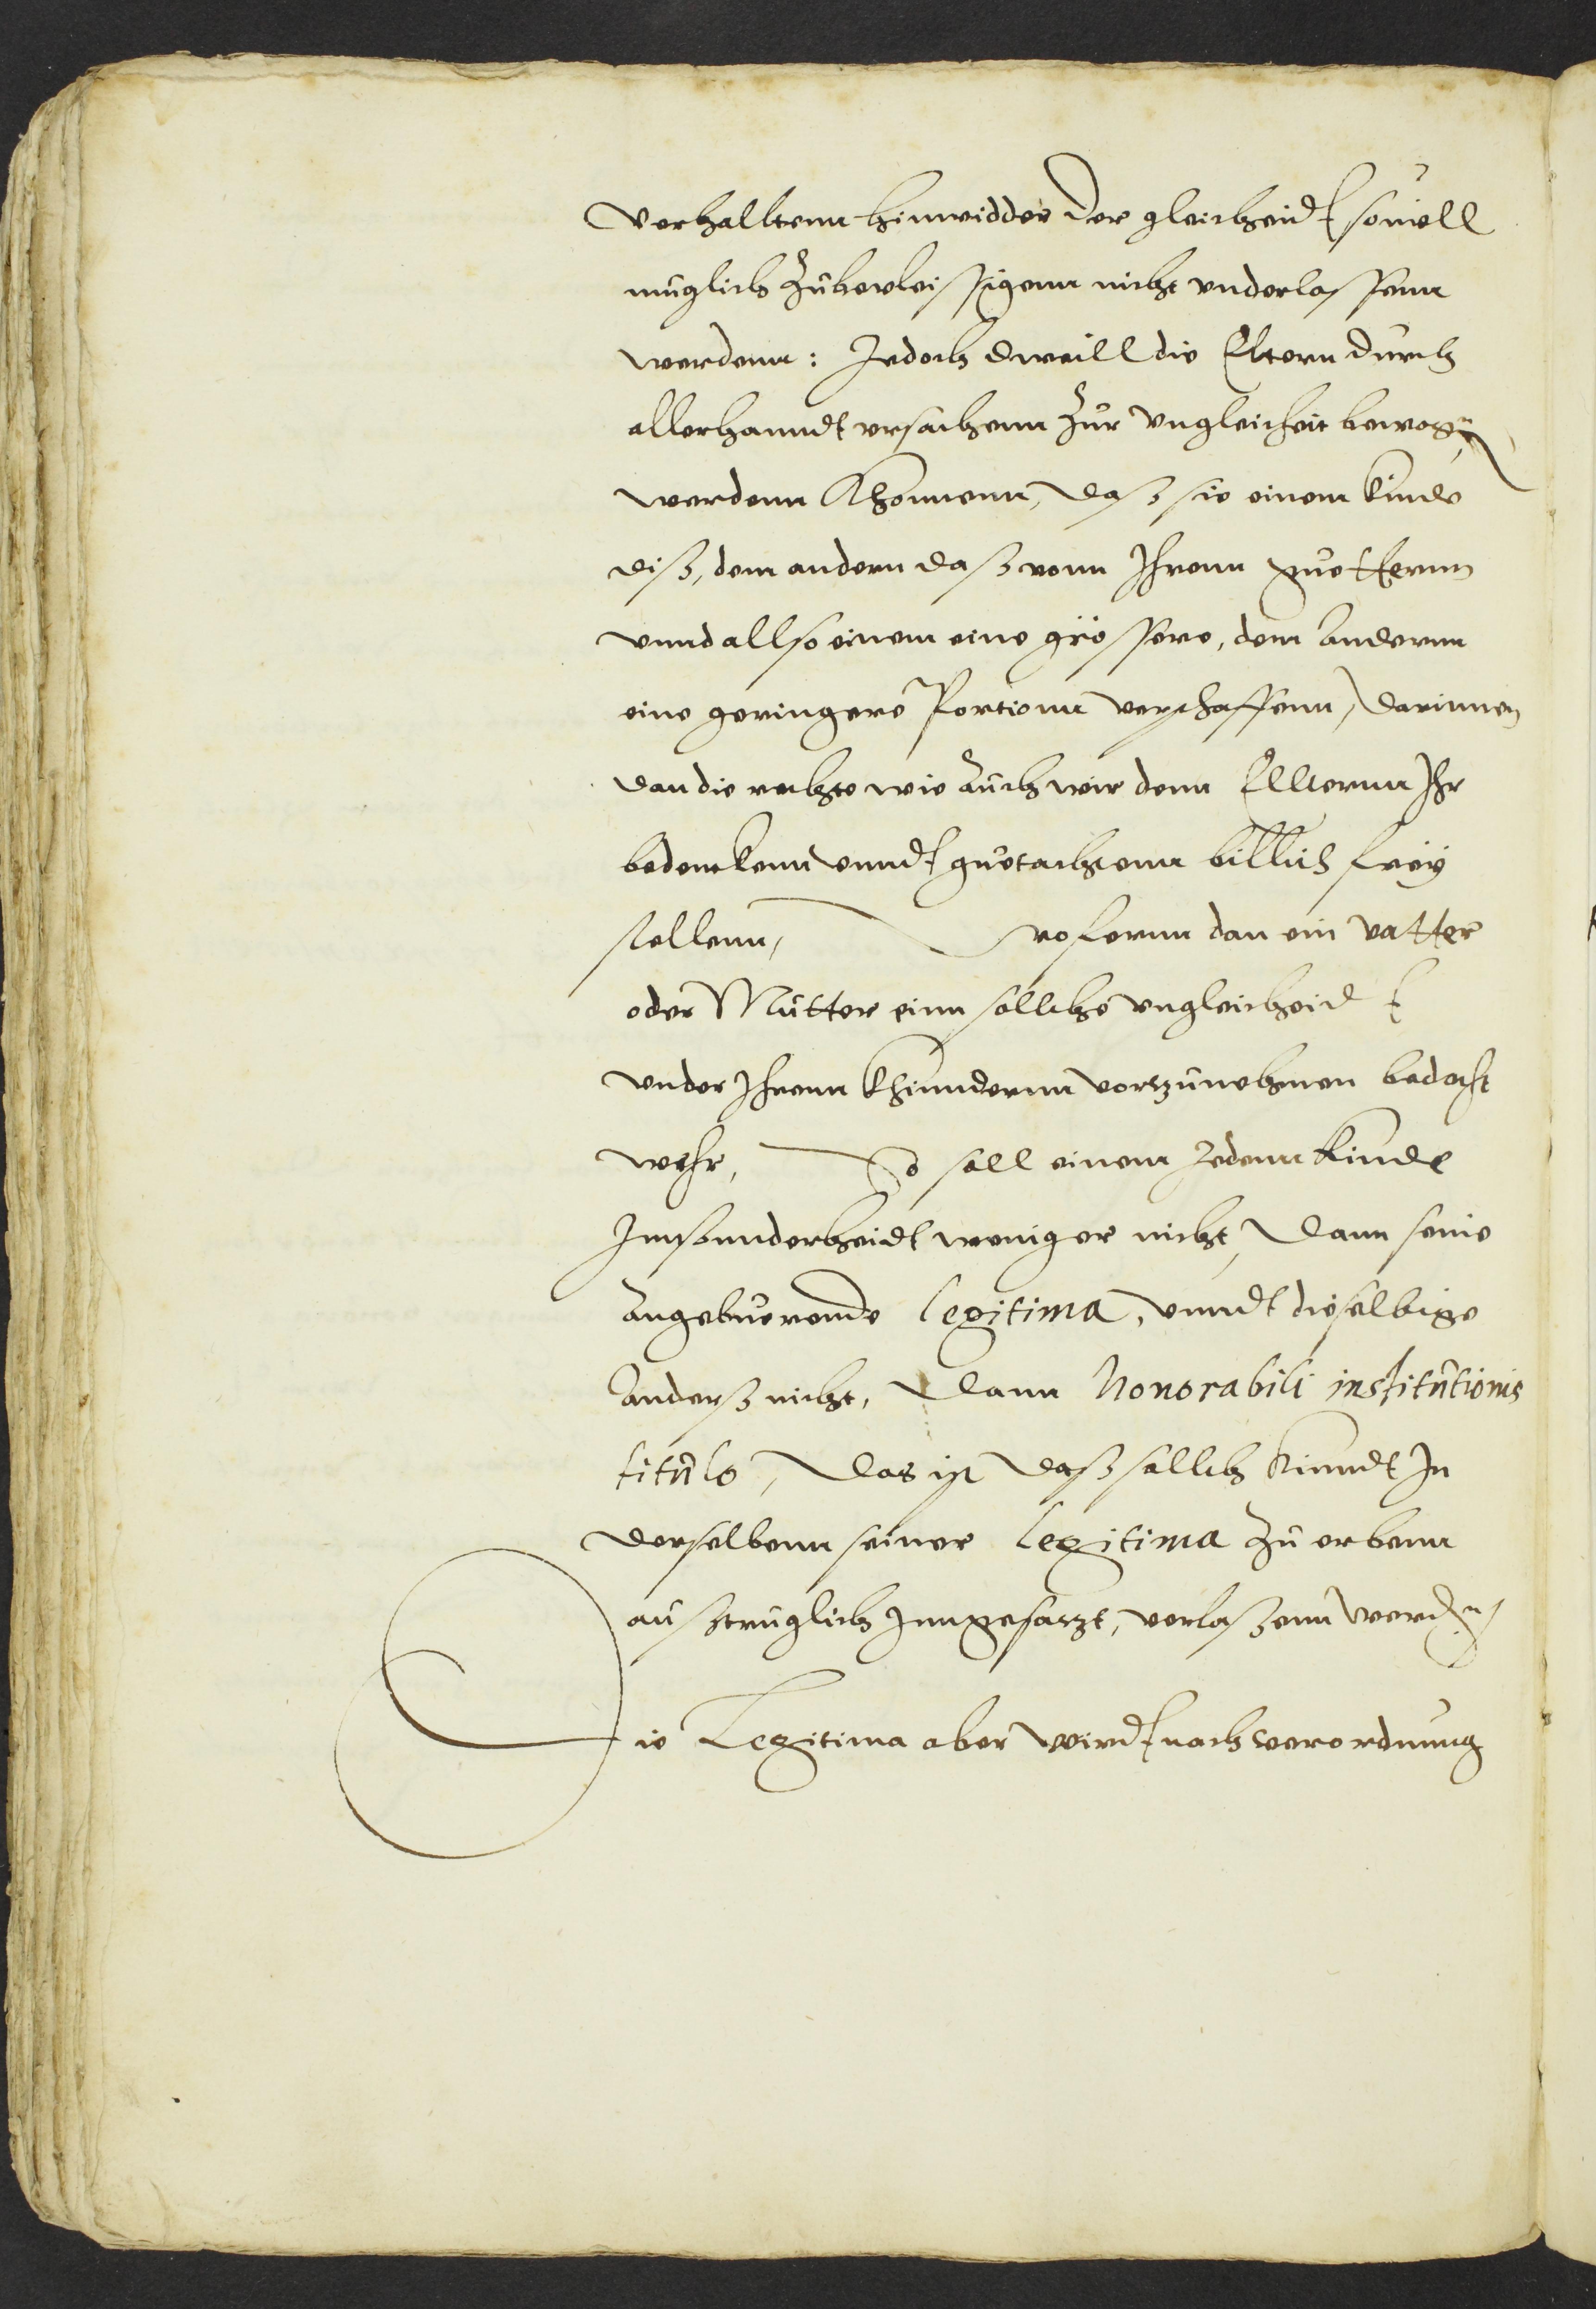 verhalltenn hinwidder der gleichheidt souiell
muglich zubevleissigenn nicht underlassenn
werdenn: Jedoch dweill die Elltern durch
allerhanndt ursachenn zur ungleicheit bewogen
werdenn khonnenn, daß sie einem kinde
diß, dem andern daß vonn Ihrenn guetternn
unnd allso einem eine grössere, dem andernn
eine geringere Portionn verschaffenn, darinnen
dan die rechte wie auch wir denn Elltternn Ihr
bedenckenn unndt guetachtenn billich frey
stellenn, wofernn dan ein vatter
oder Mutter einn sollche ungleichheidt
under Ihrenn khinndernn vorzunehmen bedacht
wehr, So soll einem Jedenn kinde
Innsonnderheidt weniger nicht, dann seine
angebuerende legitima, unndt dieselbige
anderß nicht, dann honorabili institutionis
titulo, das ist daß sollch kinndt In
derselbenn seiner legitima zu erbenn
außtruglich Inngesatzt, verlaßenn werden,
Die Legitima aber wirdt nach verordnung